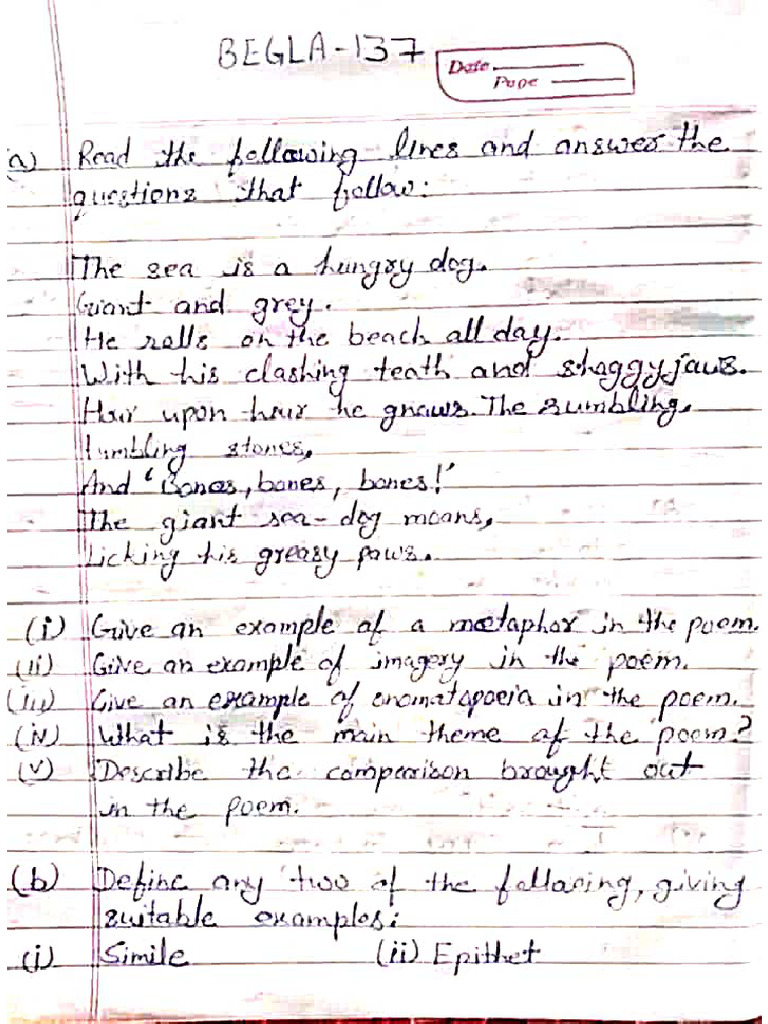 BEGLA-137
Date
Page
a) Read the following lines and answer the
questions that follow:
The sea is a hungry dog.
Giant and grey.
He rolls on the beach all day.
With his clashing teath and shaggy jaws.
Hour upon hour he gnaws. The rumbling,
tumbling stones,
And 'Bones, bones, bones!'
The giant sea-dog moans,
Licking his greasy paws.
(i) Give an example of a metaphor in the poem.
(ii) Give an example of imagery in the poem.
(iii) Give an example of onomatopoeia in the poem.
(iv) What is the main theme of the poem?
(v) Describe the comparison brought out
in the poem.
(b) Define any two of the following, giving
suitable examples:
(i) Simile (ii) Epithet